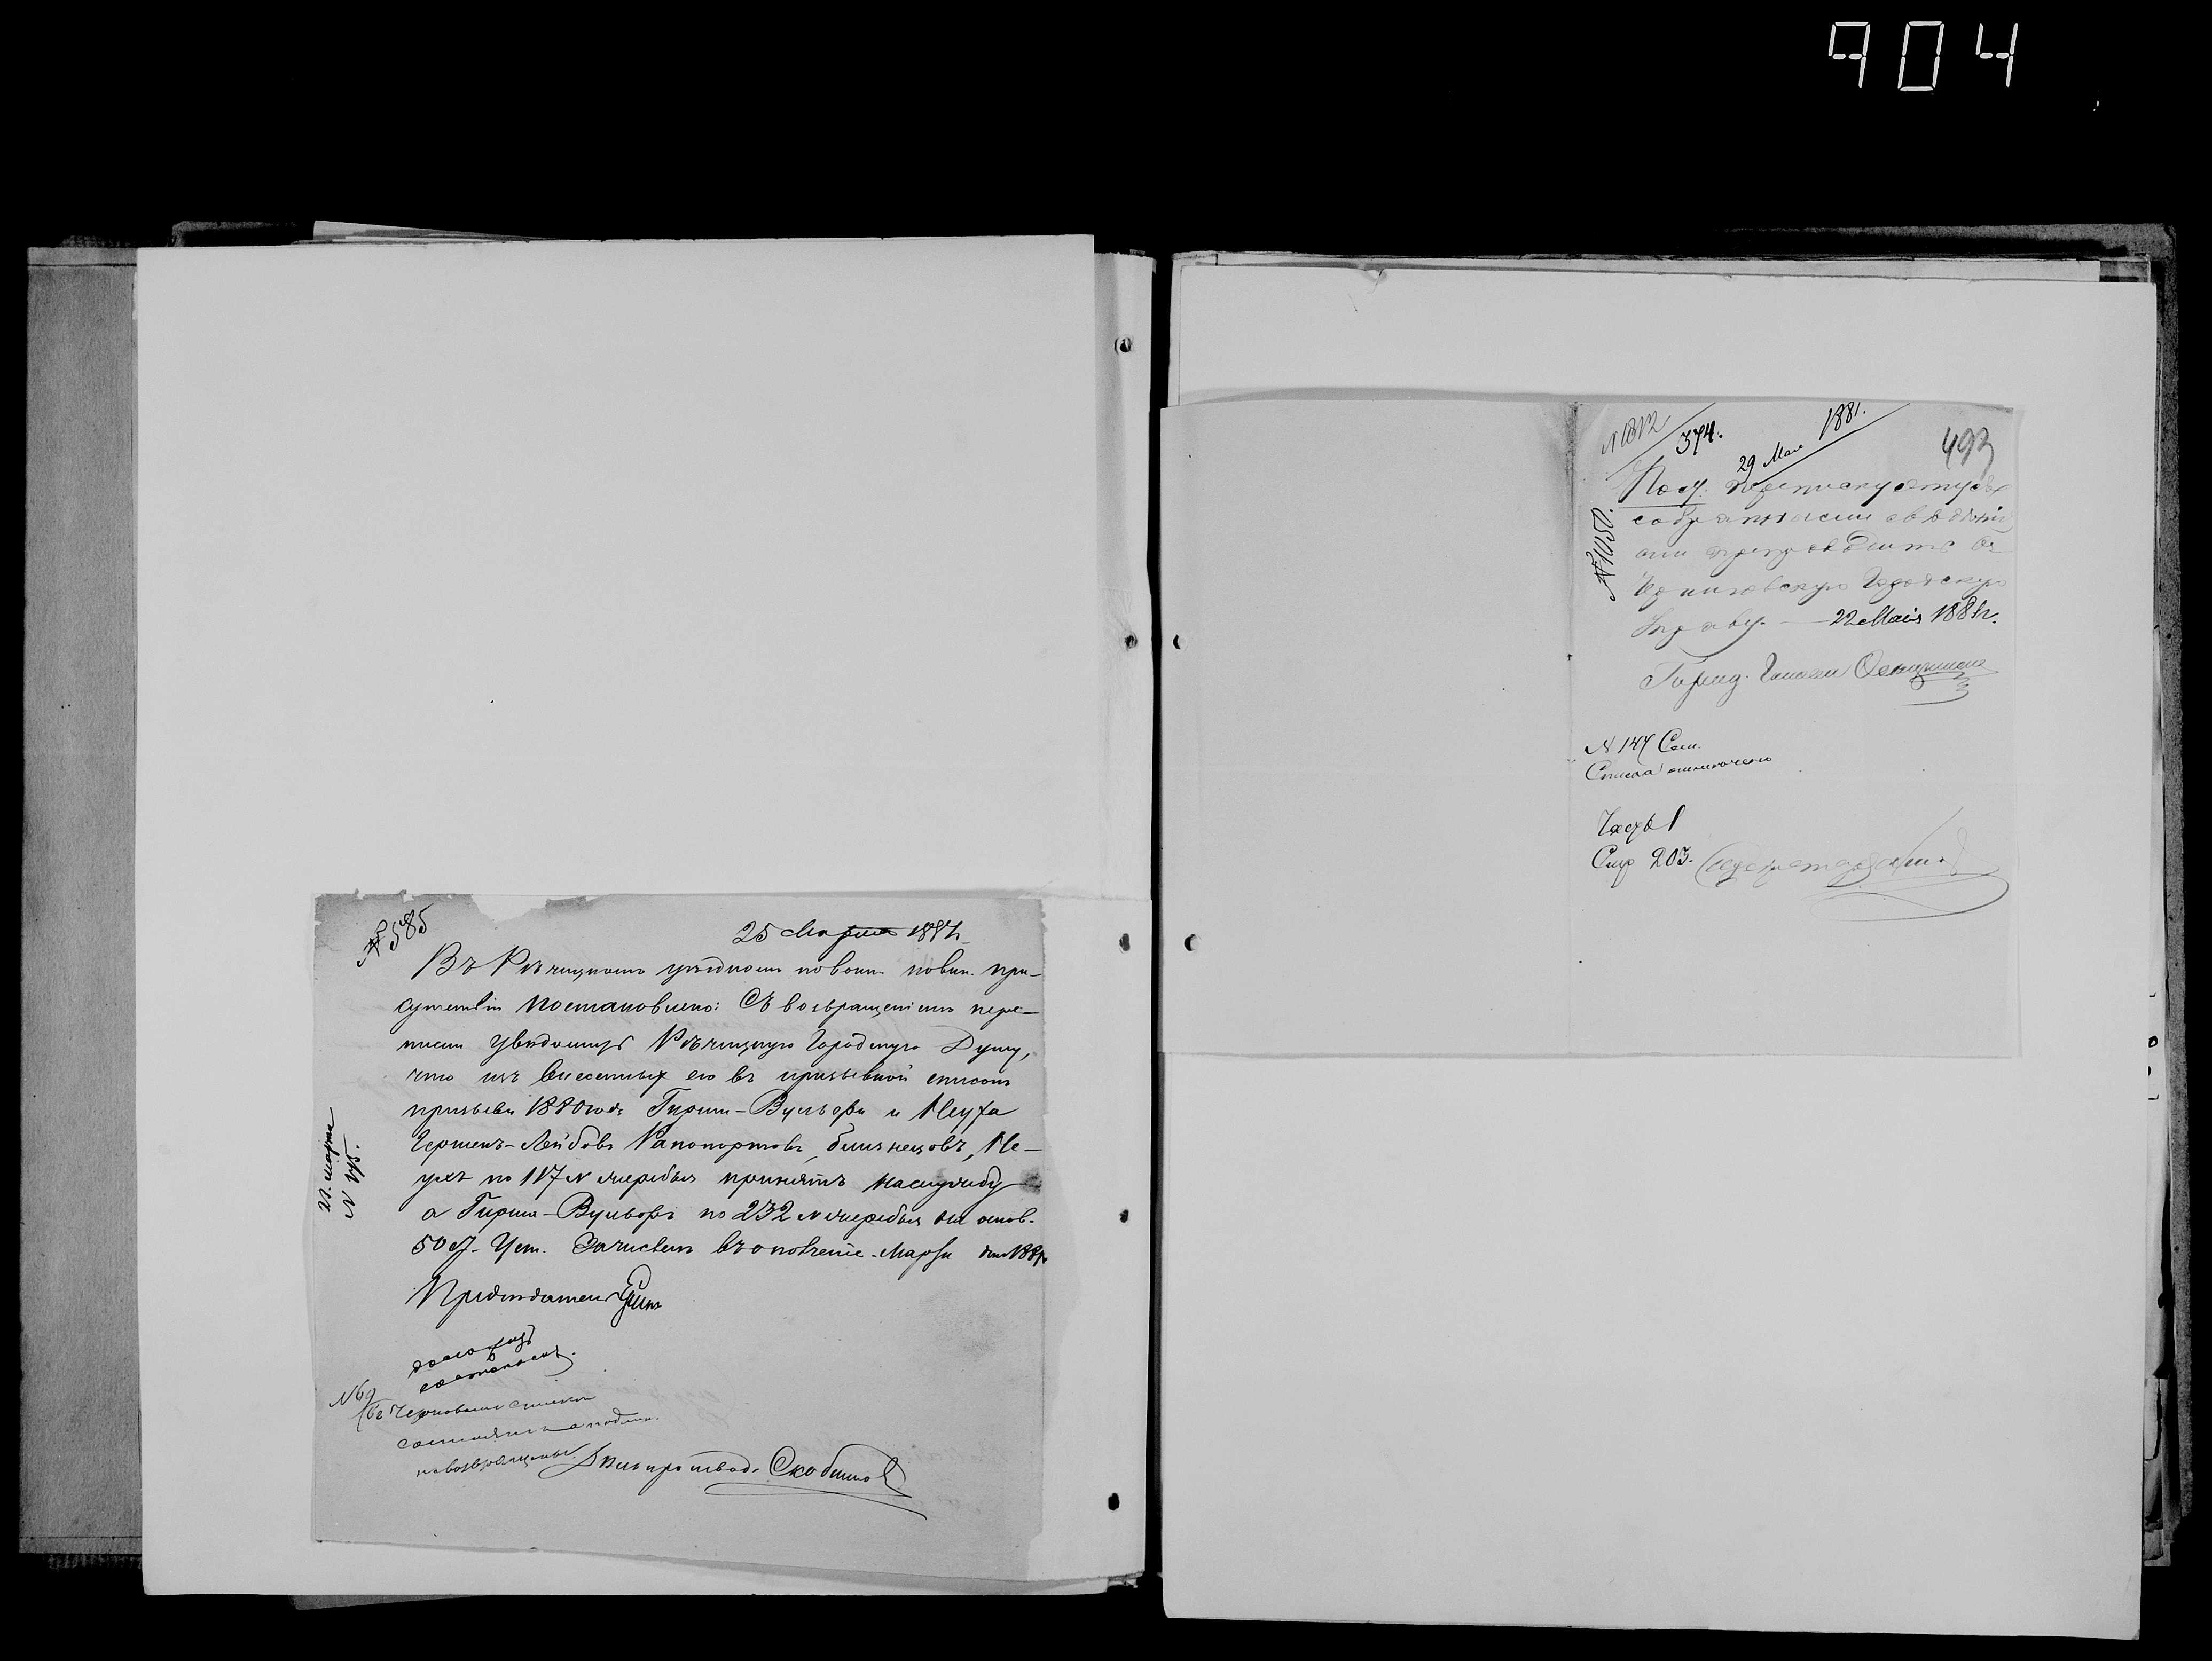 904
№ 585
25 Марта 1881 г.
Въ Рѣчицкомъ уѣздномъ по воин. повин. при-
сутствіи постановлено: Съ возвращеніемъ пере-
писки увѣдомить Рѣчицкую Городскую Думу,
что изъ внесенныхъ ею въ призывной списокъ
призыва 1880 года Гирши-Вульфа и Неуха
Гершенъ-Лейбовъ Рапопортовъ, близнецовъ, Не-
ухъ по 117 № жеребья принятъ на службу
а Гирша-Вульфъ по 232 № жеребья на основ.
50 ст. Уст. Зачисленъ въ ополченіе. Марта 1881 г.
Предсѣдатель
21 марта
№
доложить
№ 69
Черновыми списками
возвращены.
Дѣлопроизвод. Скобликов
№ 1312
374.
29 Мая 1881.
493
№ 1050.
Пост. переписку эту съ
собранными свѣдѣнія
ми препроводить въ
Черниговскую Городскую
Управу. — 22 Мая 1881 г.
Город. Голова
№ 147 Сем.
Списка
Часть 1
Стр 203.